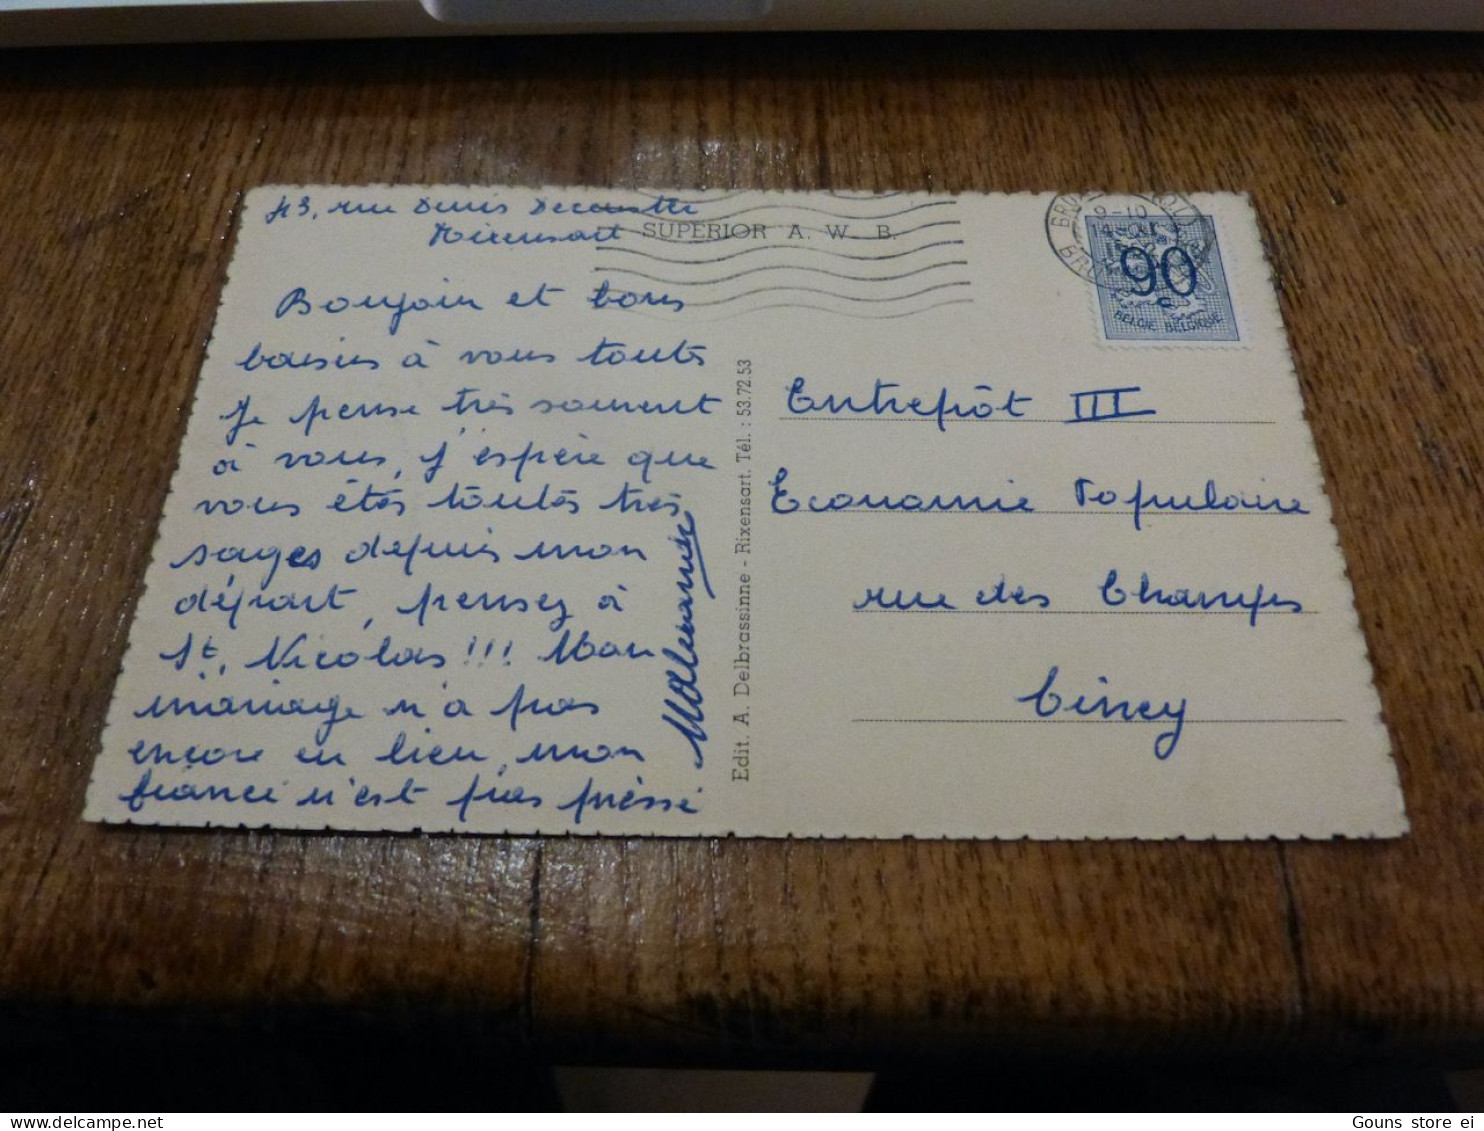 43, rue Denis Decouster
Rixensart
SUPERIOR A. W. B.
Bonjour et bons
baisers à vous toutes
Je pense très souvent
à vous, j'espère que
vous êtes toutes très
sages depuis mon
départ, pensez à
St. Nicolas !!! Mon
mariage n'a pas
encore eu lieu, mon
fiancé n'est pas pressé
Edit. A. Delbrassinne - Rixensart. Tél. : 53.72.53
9-10
90
BELGIE BELGIQUE
Entrepôt III
Economie Populaire
rue des Champs
Ciney
Gouns store ei